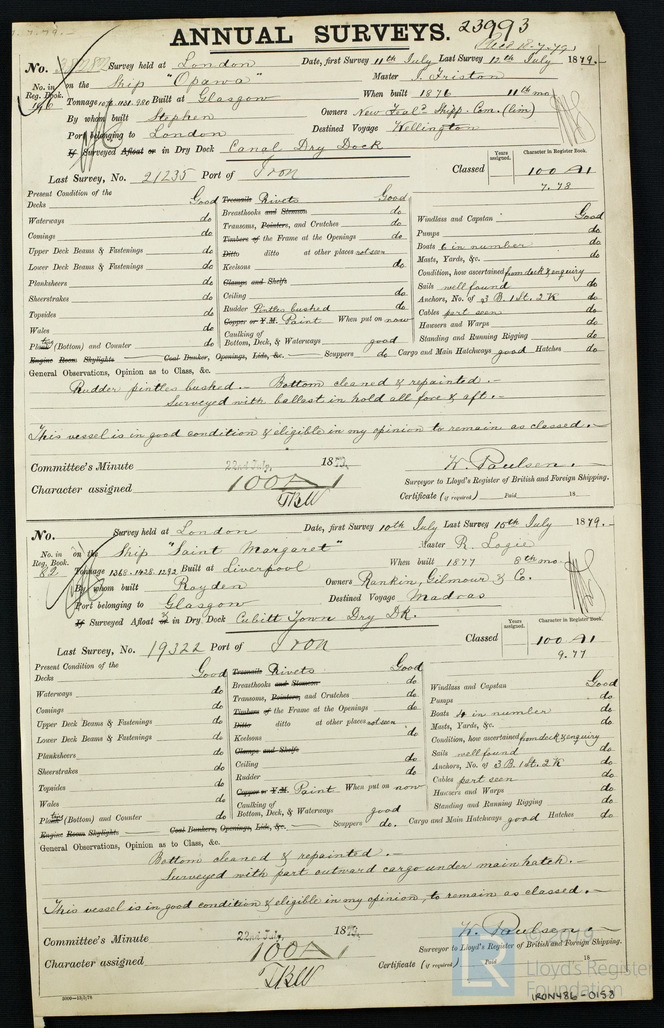 ANNUAL SURVEYS. 23993
No. 38282 Survey held at London Date, first Survey 11th July Last Survey 12th July 1879.
No. in Reg. Book. on the Ship "Opawa" Master J. Friston
Tonnage Built at Glasgow When built 1876 11th mo.
By whom built Stephen Owners New Zeal.d Shipp. Com. (lim)
Port belonging to London Destined Voyage Wellington
If Surveyed Afloat or in Dry Dock Canal Dry Dock
Last Survey, No. 21235 Port of Iron Classed Years assigned. Character in Register Book. 100 A1
7.78
Present Condition of the
Decks Good
Waterways do
Comings do
Upper Deck Beams & Fastenings do
Lower Deck Beams & Fastenings do
Planksheers do
Sheerstrakes do
Topsides do
Wales do
Plating (Bottom) and Counter do
Engine Room Skylights Coal Bunker, Openings, Lids, &c. Scuppers do
Treenails Rivets Good
Breasthooks and Stemson do
Transoms, Pointers, and Crutches do
Timbers of the Frame at the Openings do
Ditto ditto at other places not seen
Keelsons do
Clamps and Shelfs
Ceiling do
Rudder Pintles bushed do
Copper or Y.M. Paint When put on now
Caulking of
Bottom, Deck, & Waterways good
Windlass and Capstan Good
Pumps do
Boats 6 in number do
Masts, Yards, &c. do
Condition, how ascertained from deck & enquiry
Sails well found do
Anchors, No. of 3 B. 1 St. 2 K do
Cables part seen do
Hawsers and Warps do
Standing and Running Rigging do
Cargo and Main Hatchways good Hatches do
General Observations, Opinion as to Class, &c.
Rudder pintles bushed. — Bottom cleaned & repainted. —
Surveyed with ballast in hold all fore & aft. —
This vessel is in good condition & eligible in my opinion to remain as classed. —
Committee's Minute 22nd July, 1879. W. Paulsen. —
Character assigned 100 A1 Surveyor to Lloyd's Register of British and Foreign Shipping.
TBW Certificate (if required) Paid 18
No. Survey held at London Date, first Survey 10th July Last Survey 15th July 1879.
No. in Reg. Book. on the Ship "Saint Margaret" Master R. Logie
82 Tonnage 1368.1428.1292 Built at Liverpool When built 1877 8th mo.
By whom built Royden Owners Rankin, Gilmour & Co.
Port belonging to Glasgow Destined Voyage Madras
If Surveyed Afloat or in Dry Dock Cubitt Town Dry Dk.
Last Survey, No. 19322 Port of Iron Classed Years assigned. Character in Register Book. 100 A1
9.77
Present Condition of the
Decks Good
Waterways do
Comings do
Upper Deck Beams & Fastenings do
Lower Deck Beams & Fastenings do
Planksheers do
Sheerstrakes do
Topsides do
Wales do
Plating (Bottom) and Counter do
Engine Room Skylights Coal Bunkers, Openings, Lids, &c. Scuppers do.
Treenails Rivets Good
Breasthooks and Stemson do
Transoms, Pointers, and Crutches do
Timbers of the Frame at the Openings do
Ditto ditto at other places not seen
Keelsons do
Clamps and Shelfs
Ceiling do
Rudder do
Copper or Y.M. Paint When put on now
Caulking of
Bottom, Deck, & Waterways good
Windlass and Capstan Good
Pumps do
Boats 4 in number do
Masts, Yards, &c. do
Condition, how ascertained from deck & enquiry
Sails well found do
Anchors, No. of 3 B. 1 St. 2 K do
Cables part seen do
Hawsers and Warps do
Standing and Running Rigging do
Cargo and Main Hatchways good Hatches do
General Observations, Opinion as to Class, &c.
Bottom cleaned & repainted. —
Surveyed with part outward cargo under main hatch. —
This vessel is in good condition & eligible in my opinion, to remain as classed. —
Committee's Minute 22nd July, 1879. W. Paulsen —
Character assigned 100 A1 Surveyor to Lloyd's Register of British and Foreign Shipping.
TBW Certificate (if required) Paid 18
© 2019
LR Lloyd's Register Foundation
IRON486-0158